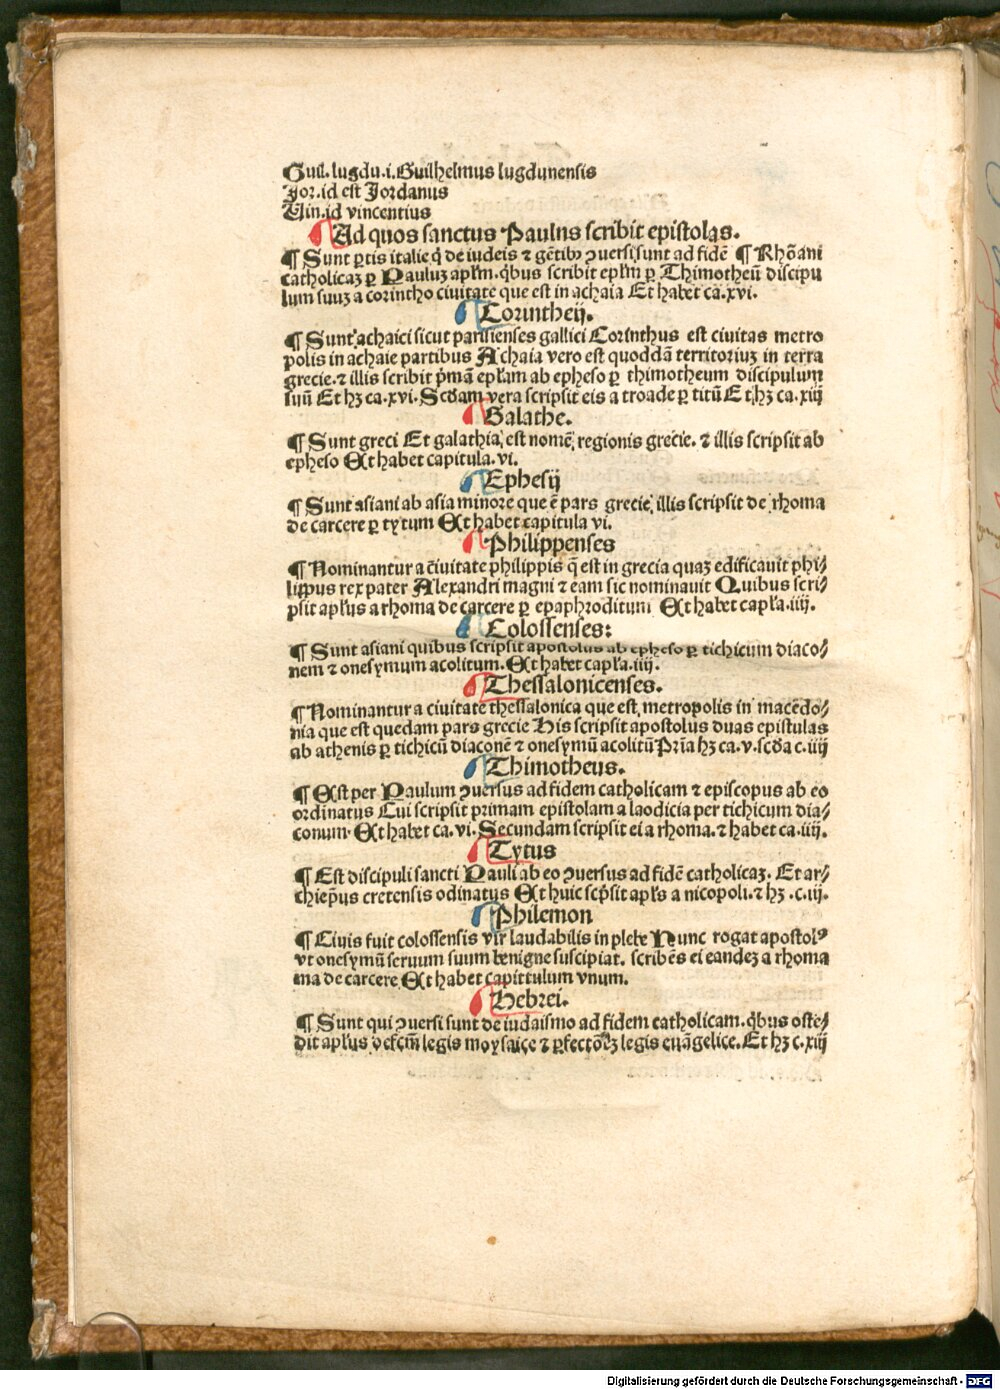 Guil. lugdu .i. Guilhelmus lugdunensis
Jor. id est Jordanus
Vin. id vincentius
¶ Ad quos sanctus Paulns scribit epistolas.
¶ Sunt ꝑtis italie q̇ de iudeis ⁊ gẽtibꝰ ꝯuersi, sunt ad fidẽ ¶ Rhõani
catholicaꝫ ꝑ Pauluꝫ apl̃m. q̇bus scribit epl̃m ꝑ Thimotheũ discipu
lum suuꝫ a corintho ciuitate que est in achaia Et habet ca. xvi.
¶ Corintheij.
¶ Sunt achaici sicut parisienses gallici Corinthus est ciuitas metro
polis in achaie partibus Achaia vero est quoddã territoriuꝫ in terra
grecie. ⁊ illis scribit p̃mã epl̃am ab epheso ꝑ thimotheum discipulum
suũ Et hꝫ ca. xvi. Scd̃am vera scripsit eis a troade ꝑ titũ Et hꝫ ca. xiij
¶ Galathe.
¶ Sunt greci Et galathia, est nomẽ, regionis grecie. ⁊ illis scripsit ab
epheso Et habet capitula. vi.
¶ Ephesij
¶ Sunt asiani ab asia minore que ẽ pars grecie, illis scripsit de rhoma
de carcere ꝑ tytum Et habet capitula vi.
¶ Philippenses
¶ Nominantur a ciuitate philippis q̃ est in grecia quaꝫ edificauit phi⸗
lippus rex pater Alexandri magni ⁊ eam sic nominauit Quibus scri⸗
psit apl̃us a rhoma de carcere ꝑ epaphroditum Et habet capl̃a. iiij.
¶ Colossenses:
¶ Sunt asiani quibus scripsit apostolus ab epheso ꝑ tichicum diaco⸗
nem ⁊ onesymum acolitum. Et habet capl̃a. iiij.
¶ Thessalonicenses.
¶ Nominantur a ciuitate thessalonica que est, metropolis in macedo⸗
nia que est quedam pars grecie His scripsit apostolus duas epistulas
ab athenis ꝑ tichicũ diaconẽ ⁊ onesymũ acolitũ Pr̃ia hꝫ ca. v. scd̃a c. iij
¶ Thimotheus.
¶ Est per Paulum ꝯuersus ad fidem catholicam ⁊ episcopus ab eo
ordinatus Cui scripsit primam epistolam a laodicia per tichicum dia⸗
conum. Et habet ca. vi. Secundam scripsit ei a rhoma. ⁊ habet ca. iiij.
¶ Tytus
¶ Est discipuli sancti Pauli ab eo ꝯuersus ad fidẽ catholicaꝫ. Et ar⸗
chiep̃us cretensis odinatus Et huic scp̃sit apl̃s a nicopoli. ⁊ hꝫ .c. iij.
¶ Philemon
¶ Ciuis fuit colossensis vir laudabilis in plebe Nunc rogat apostolꝰ
vt onesymũ seruum suum benigne suscipiat. scribẽs ei eandeꝫ a rhoma
ma de carcere Et habet capittulum vnum.
¶ Hebrei.
¶ Sunt qui ꝯuersi sunt de iudaismo ad fidem catholicam. q̇bus oste⸗
dit apl̃us defcm̃ legis moysaice ⁊ ꝑfectõeꝫ legis euãgelice. Et hꝫ c. xiij
Digitalisierung gefördert durch die Deutsche Forschungsgemeinschaft - DFG